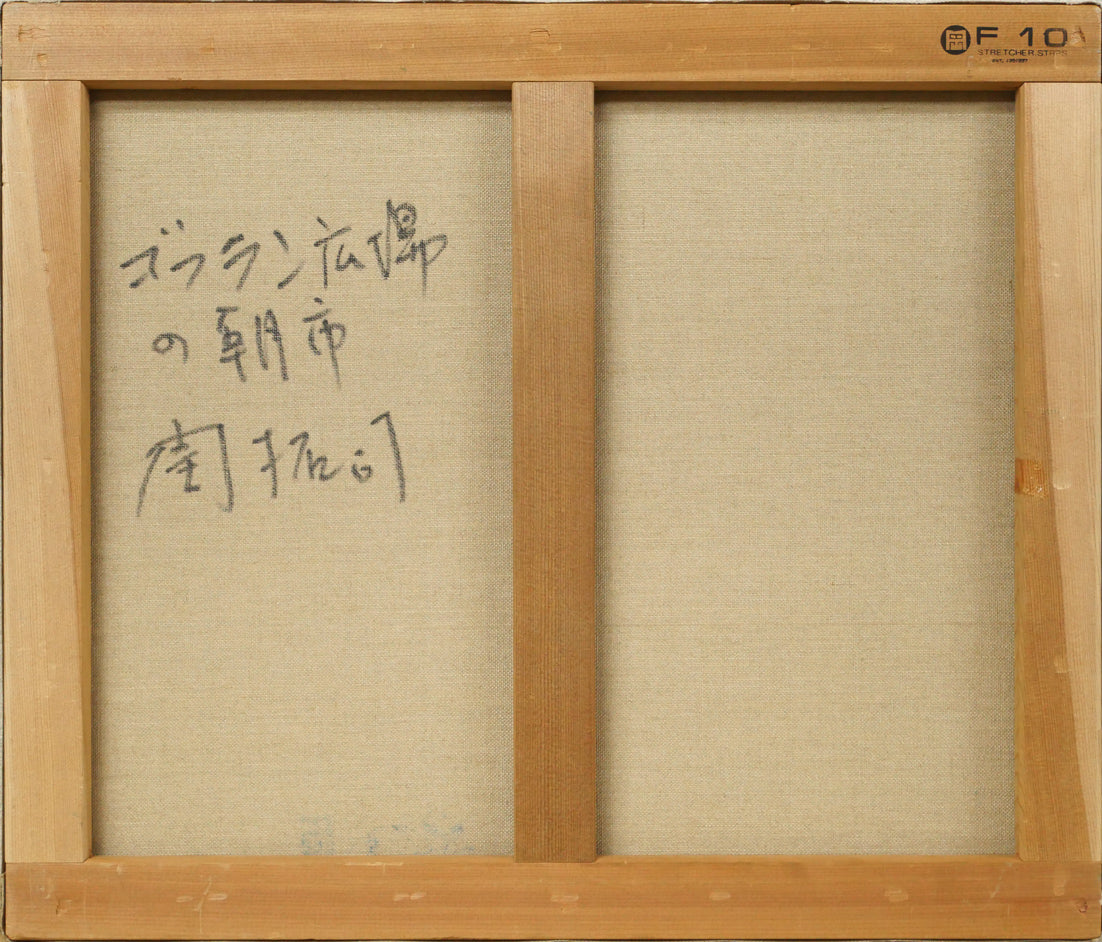 岡 F 10
STRETCHER STRIPS
ゴブラン広場
の朝市
関拓司